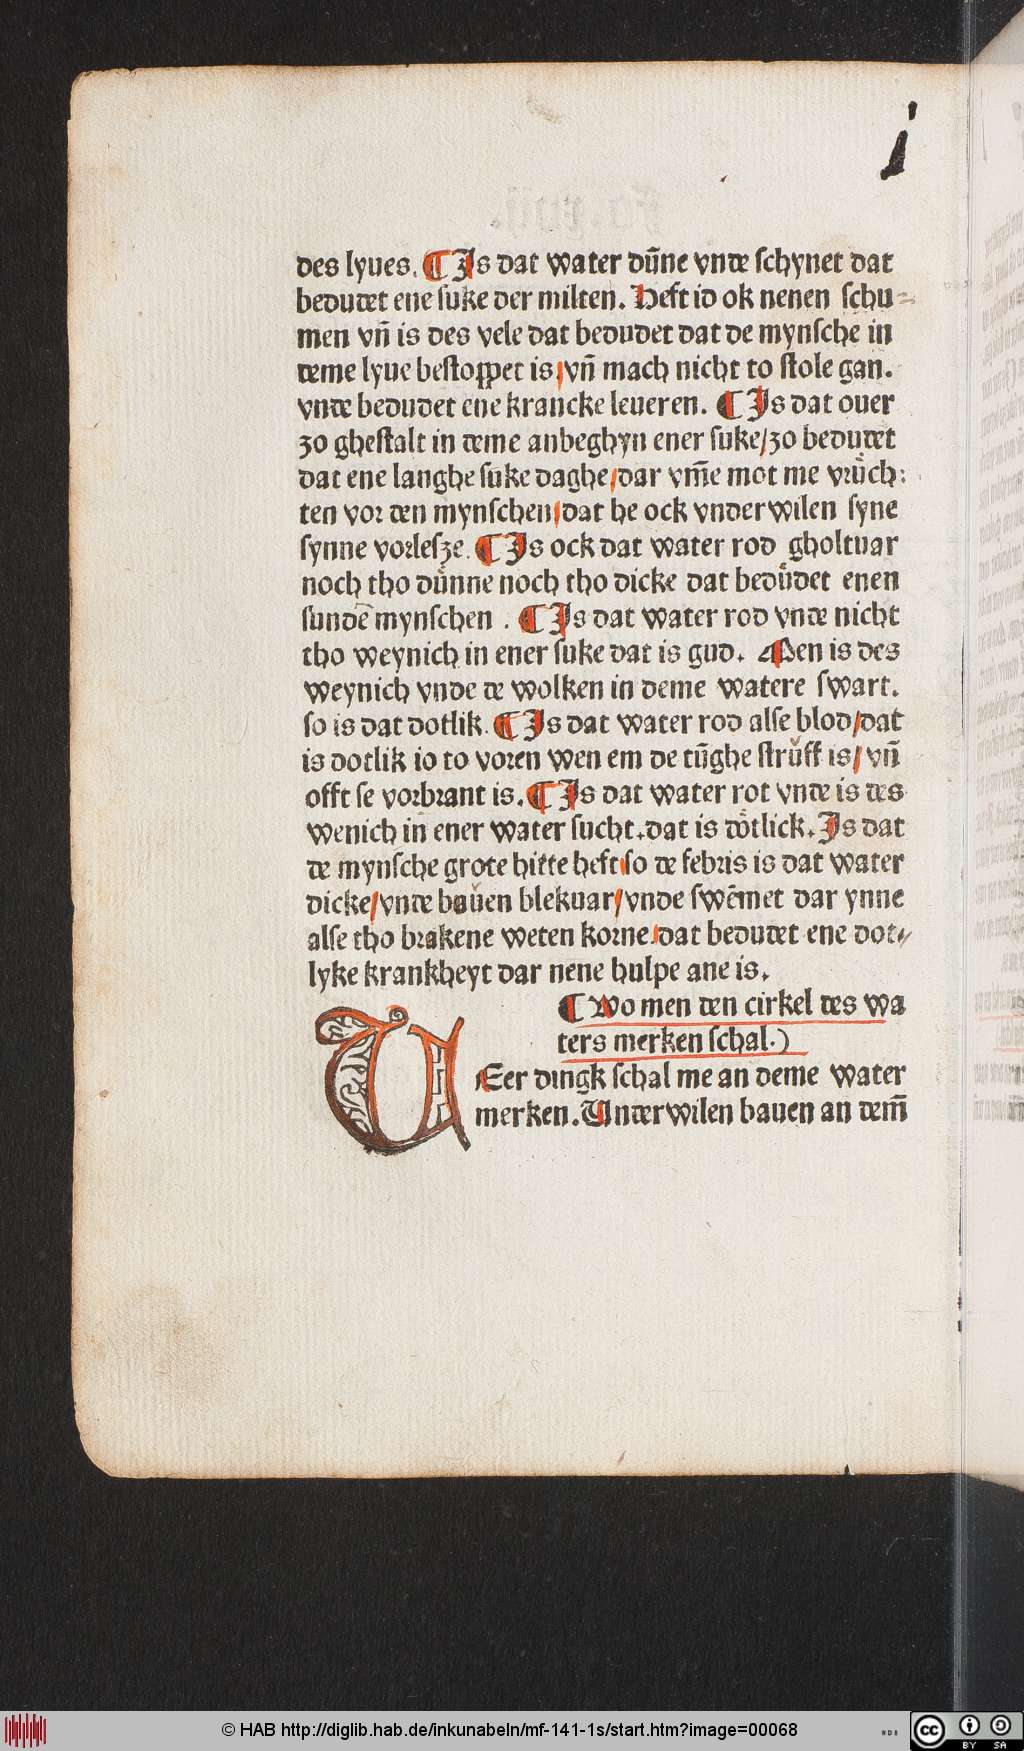 i
des lyues. ¶ Is dat water dūne vnde schynet dat
bedudet ene suke der milten. Heft id ok nenen schu⸗
men vn̄ is des vele dat bedudet dat de mynsche in
deme lyue bestoppet is/vn̄ mach nicht to stole gan.
vnde bedudet ene krancke leueren. ¶ Is dat ouer
zo ghestalt in deme anbeghyn ener suke/zo bedudet
dat ene langhe suke daghe/dar vm̄e mot me vruͤch:
ten vor den mynschen/dat he ock vnderwilen syne
synne vorlesze. ¶ Is ock dat water rod gholtuar
noch tho duͤnne noch tho dicke dat beduͤdet enen
sundē mynschen . ¶ Is dat water rod vnde nicht
tho weynich in ener suke dat is gud. Men is des
weynich vnde de wolken in deme watere swart.
so is dat dotlik. ¶ Is dat water rod alse blod/dat
is dotlik io to voren wen em de tūghe struͤff is/ vn̄
offt se vorbrant is. ¶ Is dat water rot vnde is des
wenich in ener water sucht.dat is doͤtlick. Is dat
de mynsche grote hitte heft/so de febris is dat water
dicke/vnde bauͤen blekuar/vnde swēmet dar ynne
alse tho brakene weten korne/dat bedudet ene dot⸗
lyke krankheyt dar nene hulpe ane is.
¶ Wo men den cirkel des wa
ters merken schal.)
UEer dingk schal me an deme water
merken. Underwilen bauen an dem̄
© HAB http://diglib.hab.de/inkunabeln/mf-141-1s/start.htm?image=00068
WDB
cc BY SA